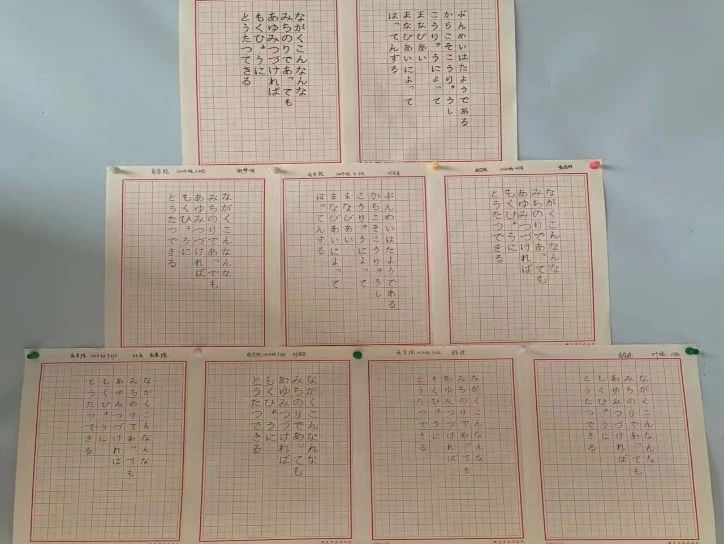 ながくこんなんな
みちのりであっても
あゆみつづければ
もくひょうに
とうたつできる
ぶんめいはたようである
からこそこうりゅうし
こうりゅうによって
まなびあい
まなびあいによって
はってんする
商学院
ながくこんなんな
みちのりであっても
あゆみつづければ
もくひょうに
とうたつできる
商学院
ぶんめいはたようである
からこそこうりゅうし
こうりゅうによって
まなびあい
まなびあいによって
はってんする
ながくこんなんな
みちのりであっても
あゆみつづければ
もくひょうに
とうたつできる
商学院
ながくこんなんな
みちのりであっても
あゆみつづければ
もくひょうに
とうたつできる
商学院
ながくこんなんな
みちのりであっても
あゆみつづければ
もくひょうに
とうたつできる
商学院
ながくこんなんな
みちのりであっても
あゆみつづければ
もくひょうに
とうたつできる
ながくこんなんな
みちのりであっても
あゆみつづければ
もくひょうに
とうたつできる